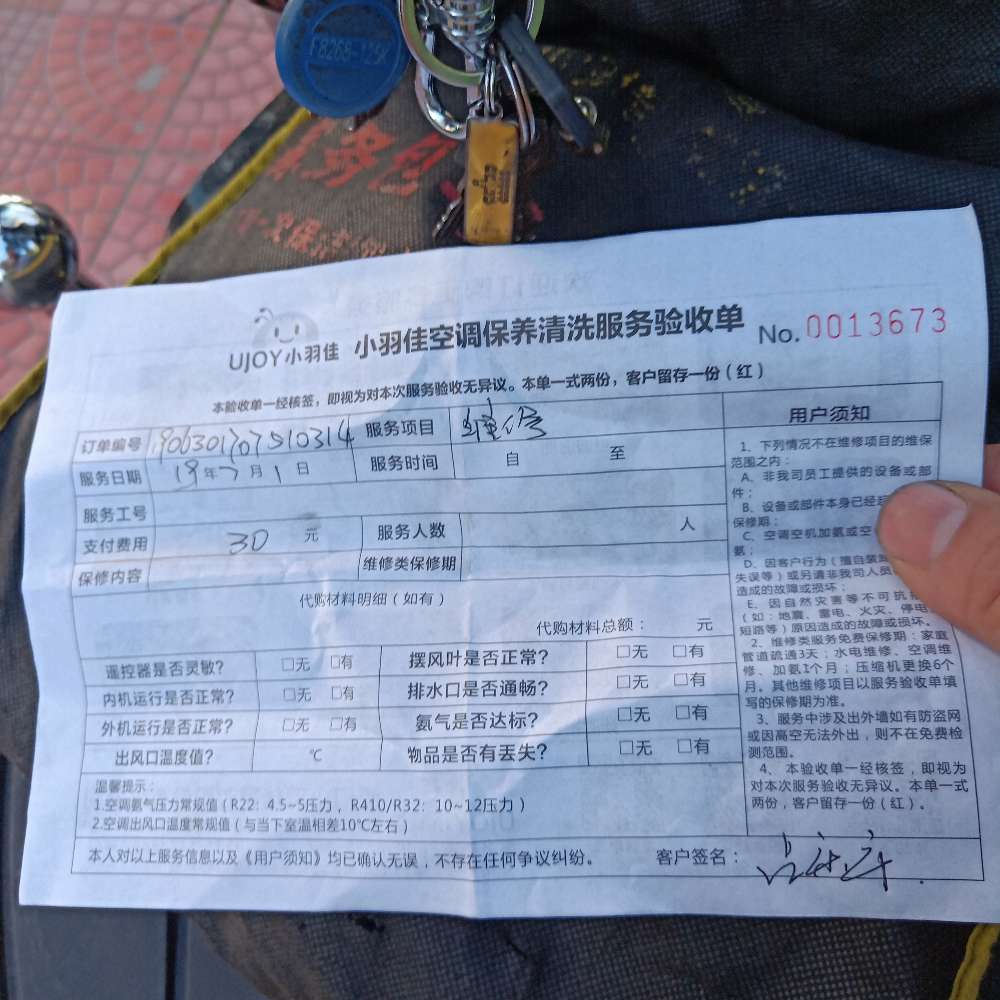 F8268-125K
务包
UJOY小羽佳 小羽佳空调保养清洗服务验收单 No.0013673
本验收单一经核签，即视为对本次服务验收无异议。本单一式两份，客户留存一份（红）
订单编号 1906301707510314 服务项目 维修
服务日期 19年7月1日 服务时间 自 至
服务工号
支付费用 30 元 服务人数 人
保修内容 维修类保修期
代购材料明细（如有）
代购材料总额： 元
遥控器是否灵敏? □无 □有 摆风叶是否正常? □无 □有
内机运行是否正常? □无 □有 排水口是否通畅? □无 □有
外机运行是否正常? □无 □有 氨气是否达标? □无 □有
出风口温度值? ℃ 物品是否有丢失? □无 □有
温馨提示：
1.空调氨气压力常规值（R22：4.5~5压力，R410/R32：10~12压力）
2.空调出风口温度常规值（与当下室温相差10℃左右）
本人对以上服务信息以及《用户须知》均已确认无误，不存在任何争议纠纷。 客户签名：
用户须知
1、下列情况不在维修项目的维保
范围之内：
A、非我司员工提供的设备或部
件；
B、设备或部件本身已经
保修期：
C、空调空机加氨或空
氨；
D、因客户行为（擅自装
失误等）或另请非我司人员
造成的故障或损坏；
E、因自然灾害等不可抗
（如：地震、雷电、火灾、停电
短路等）原因造成的故障或损坏。
2、维修类服务免费保修期：家庭
管道疏通3天；水电维修、空调维
修、加氨1个月；压缩机更换6个
月。其他维修项目以服务验收单填
写的保修期为准。
3、服务中涉及出外墙如有防盗网
或因高空无法外出，则不在免费检
测范围。
4、本验收单一经核签，即视为
对本次服务验收无异议。本单一式
两份，客户留存一份（红）。